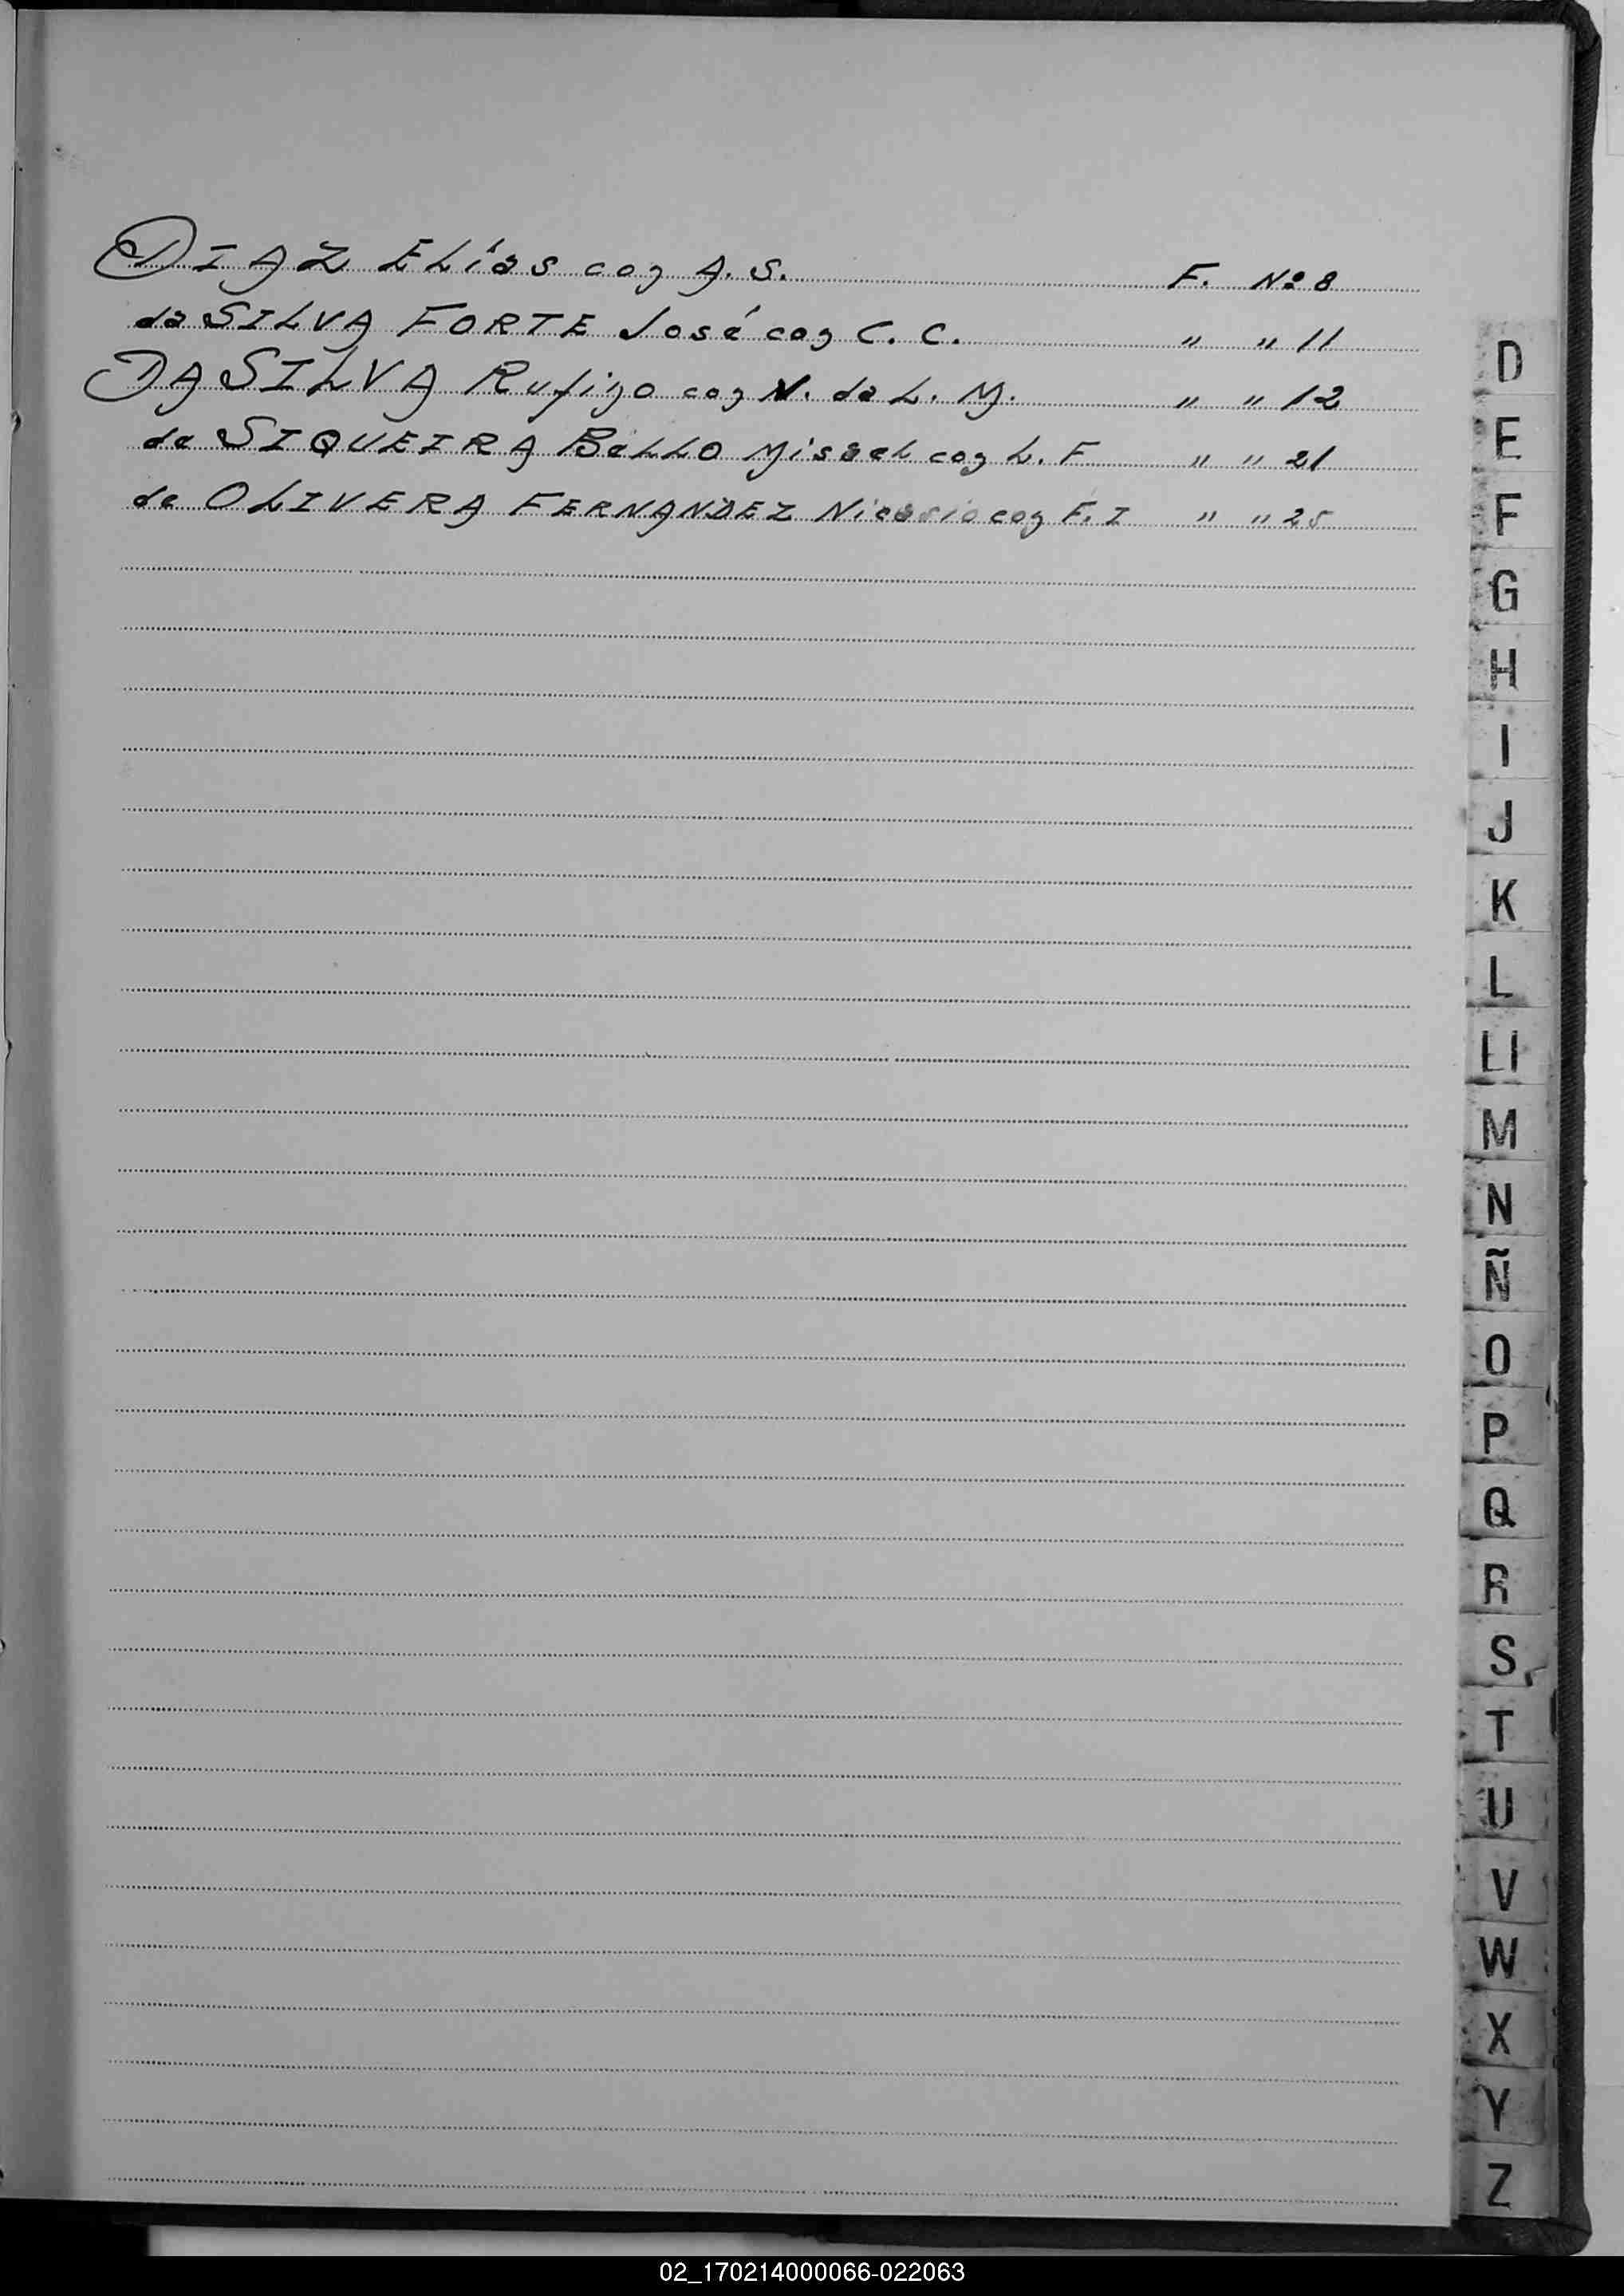 DIAZ Elías con A. S. F. Nº 8
da SILVA FORTE José con C. C. " " 11
DA SILVA Rufino con N. da L. M. " " 12
de SIQUEIRA BELLO Misael con L. F " " 21
de OLIVERA FERNANDEZ Nicasio con F. I " " 25
D
E
F
G
H
I
J
K
L
Ll
M
N
Ñ
O
P
Q
R
S
T
U
V
W
X
Y
Z
02_170214000066-022063